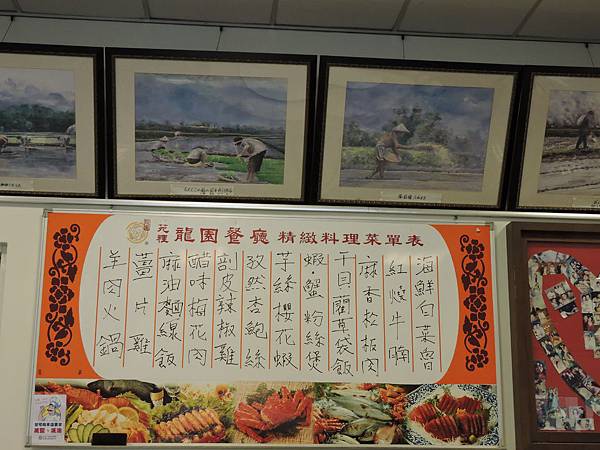 苑裡 龍園餐廳 精緻料理菜單表
海鮮白菜魯
紅燒牛腩
麻香松板肉
干貝蘭草袋飯
蝦.蟹粉絲煲
芋絲櫻花蝦
孜然杏鮑絲
剝皮辣椒雞
醋味梅花肉
麻油麵線飯
薑片雞
羊肉火鍋